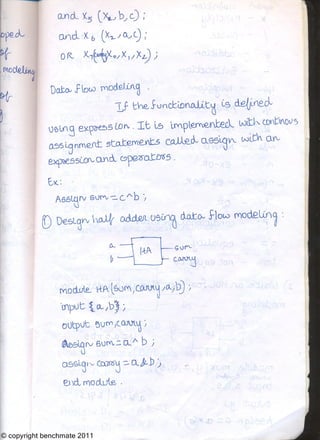 and X5 (X2, b, c) ;
oped
and X6 (X2, a, c) ;
of
OR X7 (X0, X1, X2) ;
modeling
Data Flow modeling .
of
If the functionality is defined
using expression. It is implemented with continous
assignment statements called assign with an
expression and operators.
Ex:
Assign sum = c^b ;
① Design half adder using data flow modeling :
a
HA
sum
b
carry
module HA (sum, carry, a, b) ;
input {a, b} ;
output sum, carry ;
Assign sum = a^b ;
assign carry = a & b ;
end module .
© copyright benchmate 2011